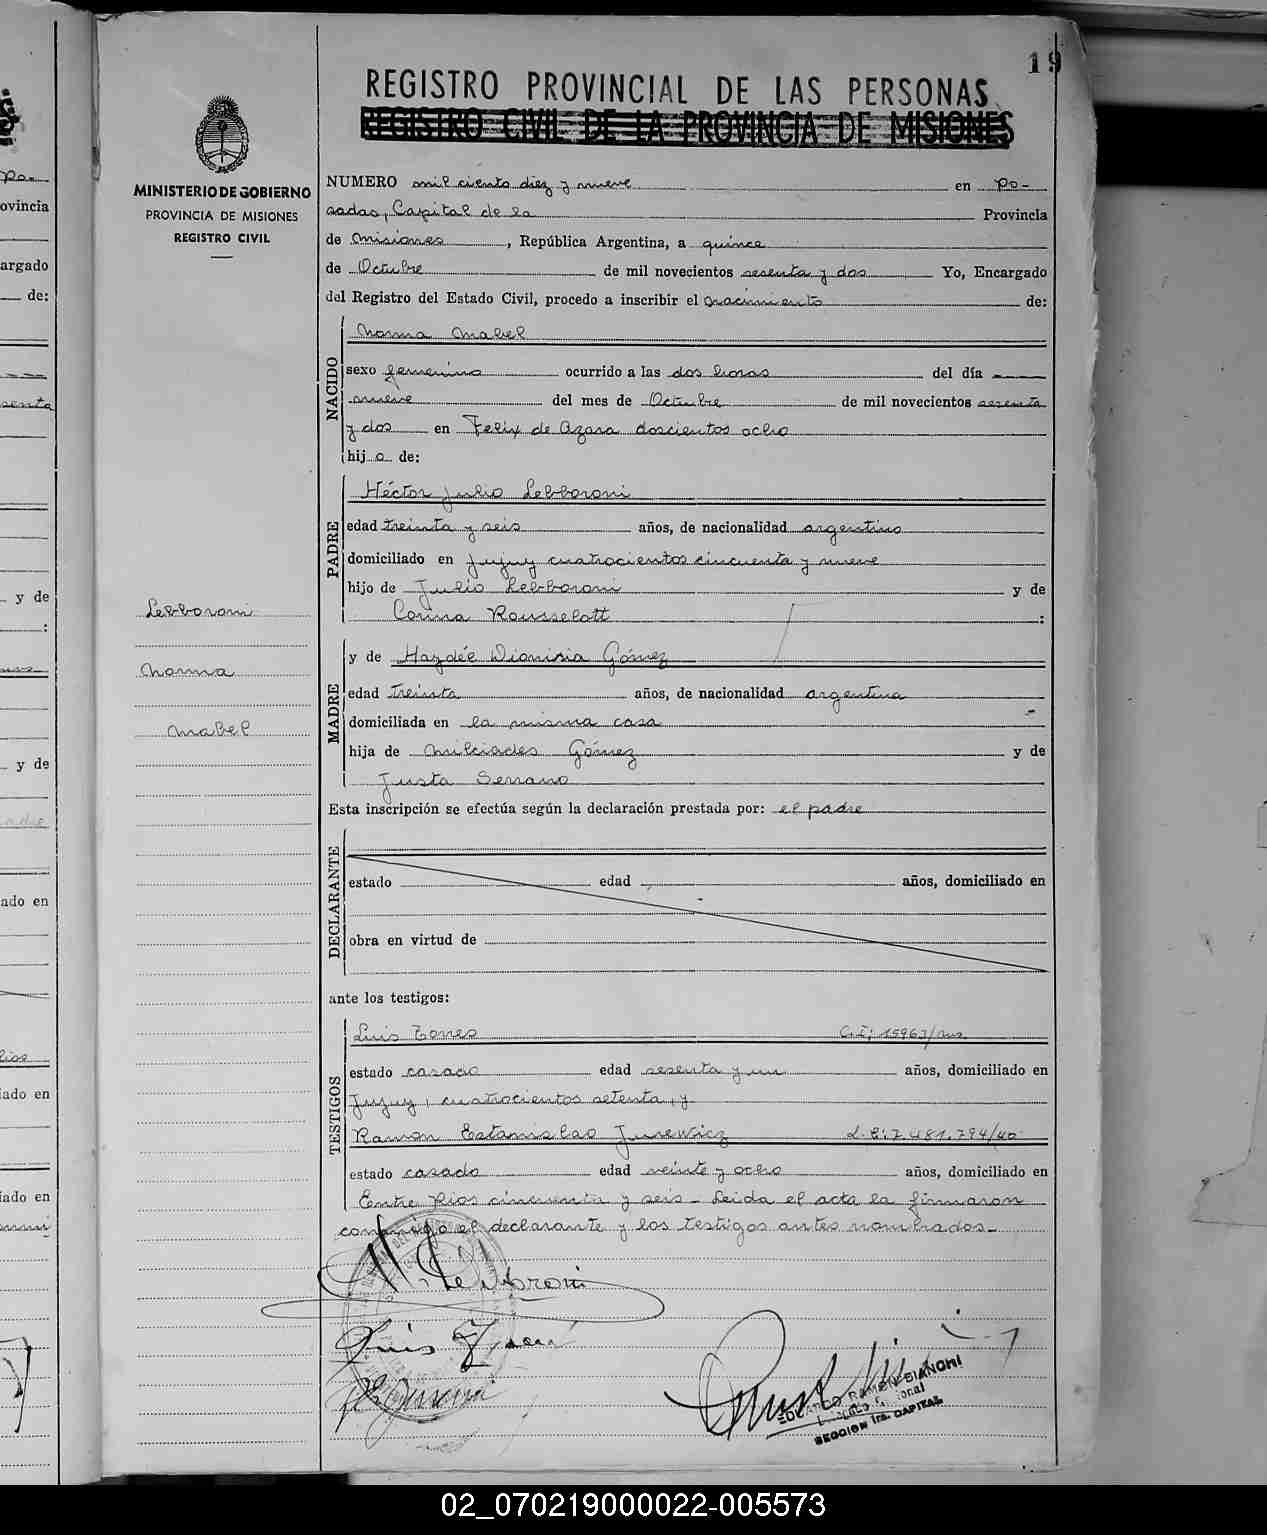 19
REGISTRO PROVINCIAL DE LAS PERSONAS
REGISTRO CIVIL DE LA PROVINCIA DE MISIONES
MINISTERIO DE GOBIERNO
PROVINCIA DE MISIONES
REGISTRO CIVIL
NUMERO mil ciento diez y nueve en Po-
sadas, Capital de la Provincia
de Misiones, República Argentina, a quince
de Octubre de mil novecientos sesenta y dos Yo, Encargado
del Registro del Estado Civil, procedo a inscribir el nacimiento de:
NACIDO
Norma Mabel
sexo femenino ocurrido a las dos horas del día
nueve del mes de Octubre de mil novecientos sesenta
y dos en Felix de Azara doscientos ocho
hij a de:
PADRE
Héctor Julio Lebboroni
edad treinta y seis años, de nacionalidad argentino
domiciliado en Jujuy cuatrocientos cincuenta y nueve
hijo de Julio Lebboroni y de
Corina Rousselott :
Lebboroni
Norma
Mabel
MADRE
y de Haydée Dionisia Gómez
edad treinta años, de nacionalidad argentina
domiciliada en la misma casa
hija de Milciades Gómez y de
Justa Serrano
Esta inscripción se efectúa según la declaración prestada por: el padre
DECLARANTE
estado edad años, domiciliado en
obra en virtud de
ante los testigos:
TESTIGOS
Luis Torres C.I: 15963/Mns.
estado casado edad sesenta y un años, domiciliado en
Jujuy, cuatrocientos setenta, y
Ramon Estanislao Jurewicz L.E: 7.481.794/40
estado casado edad veinte y ocho años, domiciliado en
Entre Rios cincuenta y seis - Leida el acta la firmaron
conmigo el declarante y los testigos antes nombrados.-
EDUARDO RAMON BIANCHI
SECCION 1ra. CAPITAL
02_070219000022-005573